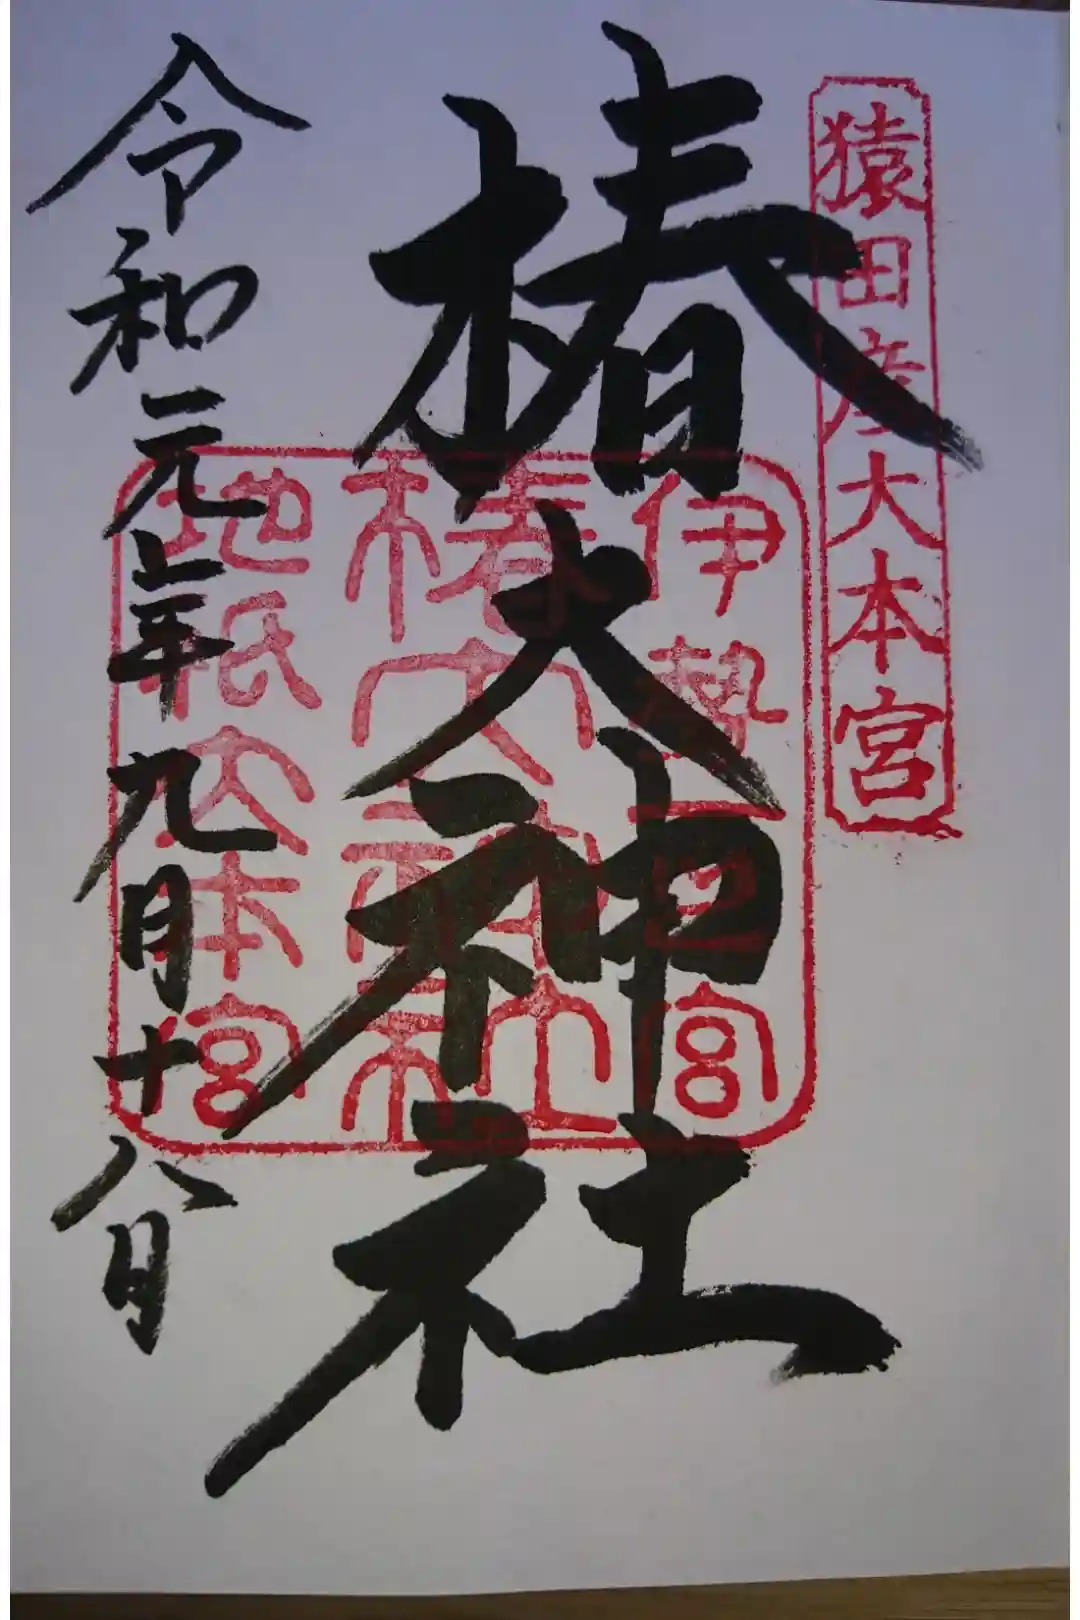 猿田彦大本宮
椿大神社
伊勢一宮
椿大神社
地祇大本宮
令和元年九月十八日